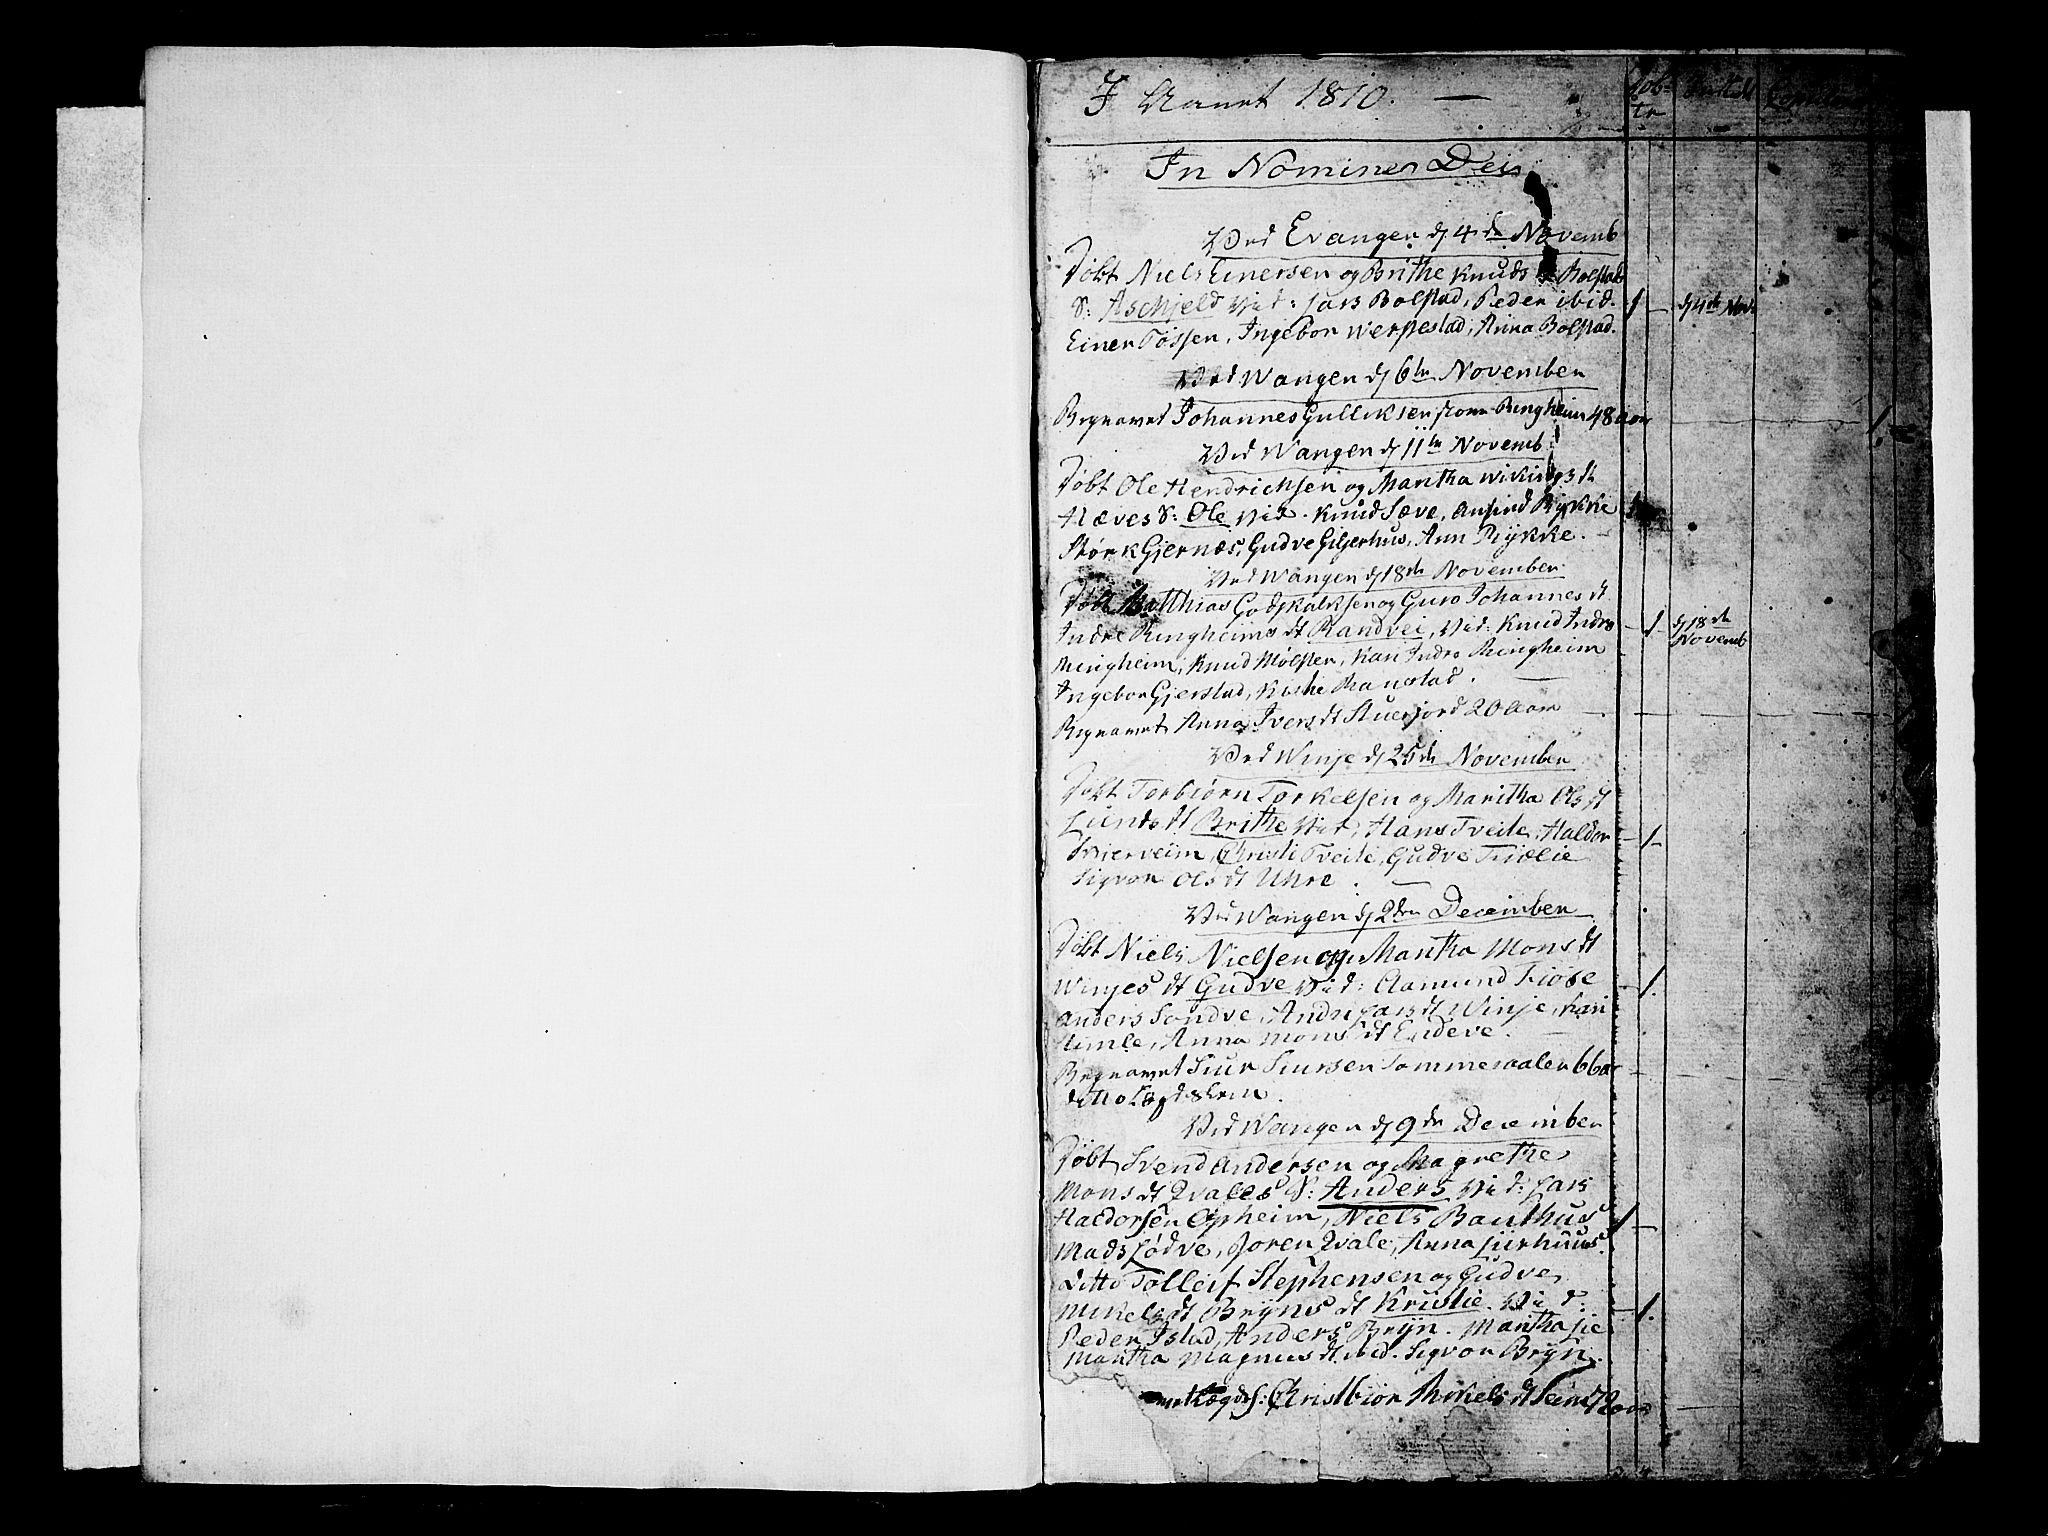 I Aaret 1810. —
Døb-
te
In Nomine Dei
Ved Evanger d 4de Novemb
Døbt Niels Einersen og Brithe Knuds Bolstads
S: Aschjeld Vid: Lars Bolstad, Peder ibid.
1 — d 4de Nov.
Einer Fossen, Ingebor Werpestad, Anna Bolstad.
Ved Wangen d 6te November
Begravet Johannes Gulliksen Ringheim 48 aar
1.
Ved Wangen d 11te Novemb
Døbt Ole Hendrichsen og Maritha Vikings dt
Hæves S: Ole Vid. Knud Sæve, Anfind Rykke
Størk Gjernæs, Gudve Giljerhus, Ann Rykke. —
Ved Wangen d 18de November
Døbt Matthias Godskalksen og Guro Johannes dt
Indre Ringheims dt Randvei, Vid: Knud Indre
— 1 — d 18de
Novemb
Ringheim, Knud Mølster, Kari Indre Ringheim
Ingebor Gjerstad, .
Begravet Anna Ivers dt 20 Aar
Ved Winje d 25de November
Døbt Torbiørn Torkelsen og Maritha Ols dt
Lunds dt Brithe Vid; Hans Tveite, Haldor
— 1 —
Skierveim, Christi Tveite, Gudve
Sigvor Ols dt Uhre. —
Ved Wangen d 2den December
Døbt Niels Nielsen og Martha Mons dt
Winjes dt Gudve Vid: Aamund Fiose
— 1.
Anders Sondve, Lars dt Winje, Kari
Himle, Anna Mons dt Endeve. —
Begravet Siur Siursen 66 ar
ditto
Ved Wangen d 9de December
Døbt Svend Andersen og Magrethe
Mons dt Qvales S: Anders Vid: Lars
Haldorsen Opheim, Niels Bauthus
1 —
Mads Lødve, Joren Qvale, Anna Lirhuus.
Ditto Tolleif Stephensen og Gudve
Mikels dt Bryns dt Kristie. Vid:
— 1.
Peder Istad, Anders Bryn. Maritha Lie
Martha Magnus dt ibid. Sigvor Bryn.
Christbior Mikels dt